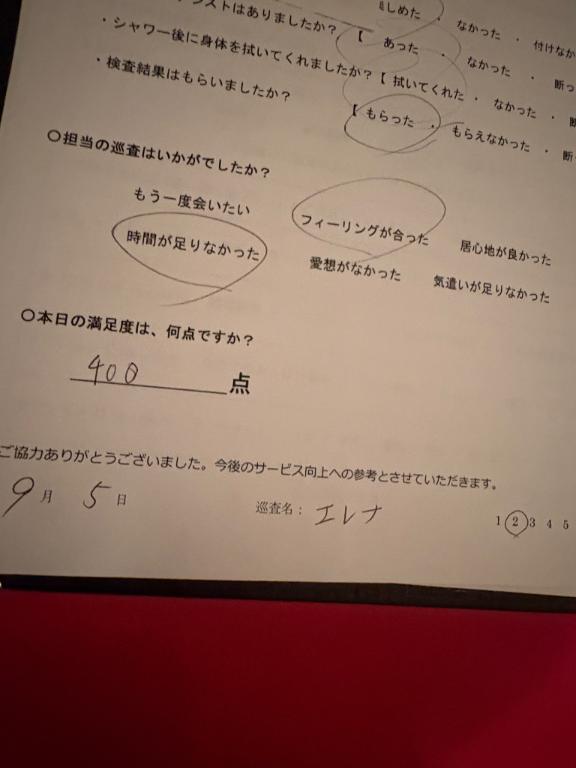 しめた ・ なかった ・ 付けなか
ストはありましたか？ 【 あった ・ なかった ・ 断っ
・シャワー後に身体を拭いてくれましたか？【 拭いてくれた ・ なかった ・
・検査結果はもらいましたか？ 【 もらった ・ もらえなかった ・ 断
〇担当の巡査はいかがでしたか？
もう一度会いたい フィーリングが合った 居心地が良かった
時間が足りなかった 愛想がなかった 気遣いが足りなかった
〇本日の満足度は、何点ですか？
400点
ご協力ありがとうございました。今後のサービス向上への参考とさせていただきます。
9月 5日 巡査名： エレナ 1 2 3 4 5